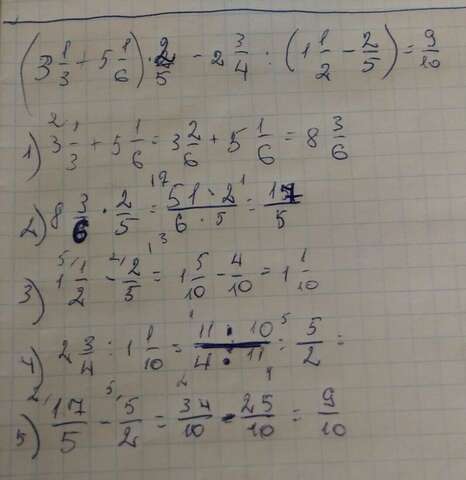 (3 1/3 + 5 1/6) · 2/5 - 2 3/4 : (1 1/2 - 2/5) = 9/10
1) 3 1/3 + 5 1/6 = 3 2/6 + 5 1/6 = 8 3/6
2) 8 3/6 · 2/5 = 51 · 2 / 6 · 5 = 17/5
3) 1 1/2 - 2/5 = 1 5/10 - 4/10 = 1 1/10
4) 2 3/4 : 1 1/10 = 11 · 10 / 4 · 11 = 5/2 =
5) 17/5 - 5/2 = 34/10 - 25/10 = 9/10